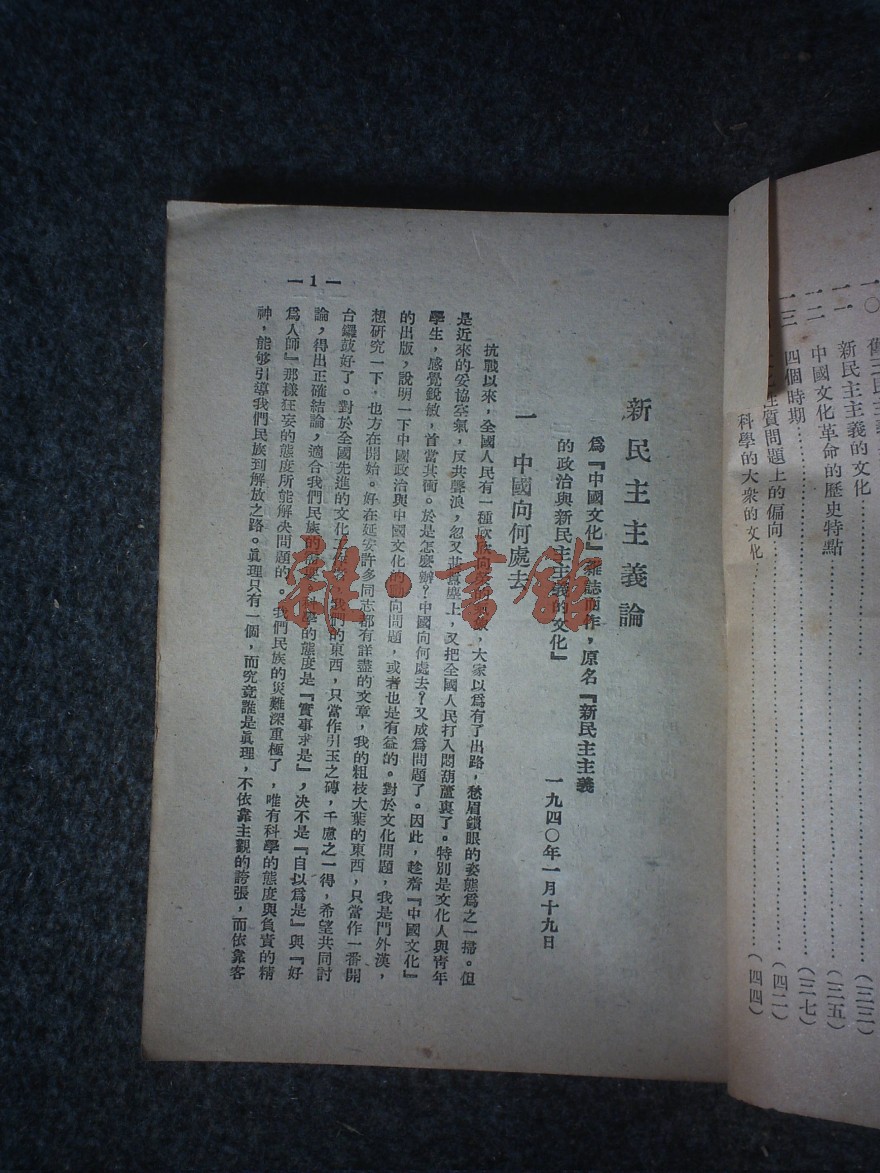 一〇
新民主主義的文化……(三三)
一一
中國文化革命的歷史特點……(三五)
一二
四個時期……(三七)
一三
性質問題上的偏向……(四二)
科學的大衆的文化……(四四)
新民主主義論
爲『中國文化』雜誌而作，原名『新民主主義
的政治與新民主主義的文化』
一九四〇年一月十九日
一 中國向何處去
抗戰以來，全國人民有一種欣欣向榮的氣象，大家以爲有了出路，愁眉鎖眼的姿態爲之一掃。但
是近來的妥協空氣，反共聲浪，忽又甚囂塵上，又把全國人民打入悶葫蘆裏了。特別是文化人與靑年
學生，感覺銳敏，首當其衝。於是怎麽辦？中國向何處去？又成爲問題了。因此，趁着『中國文化』
的出版，說明一下中國政治與中國文化的動向問題，或者也是有益的。對於文化問題，我是門外漢，
想研究一下，也方在開始。好在延安許多同志都有詳盡的文章，我的粗枝大葉的東西，只當作一番開
台鑼鼓好了。對於全國先進的文化，我們的東西，只當作引玉之磚，千慮之一得，希望共同討
論，得出正確結論，適合我們民族的需要。科學的態度是『實事求是』，決不是『自以爲是』與『好
爲人師』那樣狂妄的態度所能解決問題的。我們民族的災難深重極了，唯有科學的態度與負責的精
神，能够引導我們民族到解放之路。眞理只有一個，而究竟誰是眞理，不依靠主觀的誇張，而依靠客
—1—
雜·書館